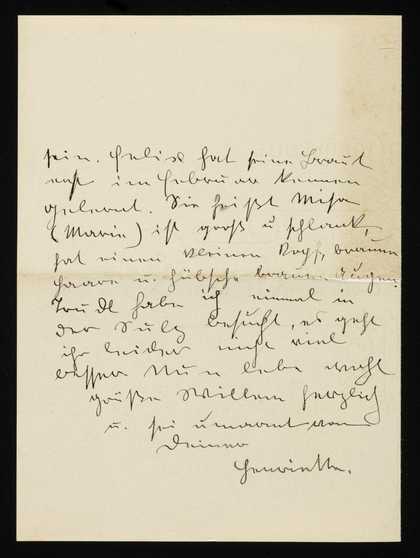 sein. Felix hat seine Braut
erst im Februar kennen
gelernt. Sie heißt Misa
(Marie) ist groß u schlank,
hat einen kleinen Kopf, braune
Haare u. hübsche braune Augen.
Trudl habe ich einmal in
der Sulz besucht, es geht
ihr leider nicht viel
besser Nun lebe recht
grüße Willem herzlich
u. sei umarmt von
Deiner
Henriette.